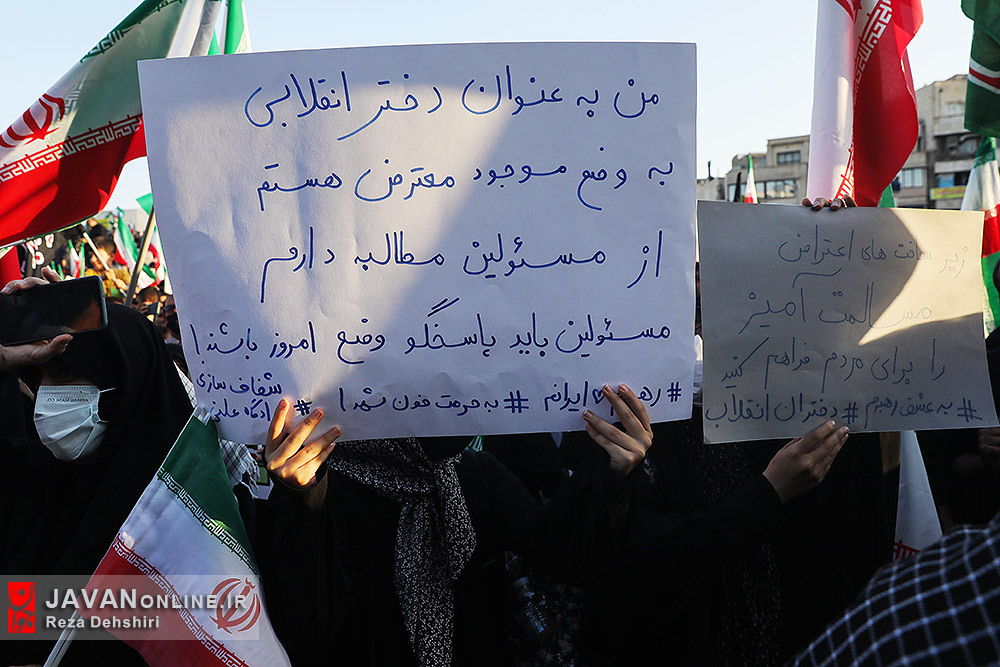 من به عنوان دختر انقلابی
به وضع موجود معترض هستم
از مسئولین مطالبه دارم
مسئولین باید پاسخگو وضع امروز باشند!
#رهبرم ♡ ایرانم #به حرمت خون شهدا #شفاف سازی
دادگاه علنی
زیر ساخت های اعتراض
مسالمت آمیز
را برای مردم فراهم کنید
#به عشق رهبرم #دختران انقلاب
JAVANONLINE.IR
Reza Dehshiri